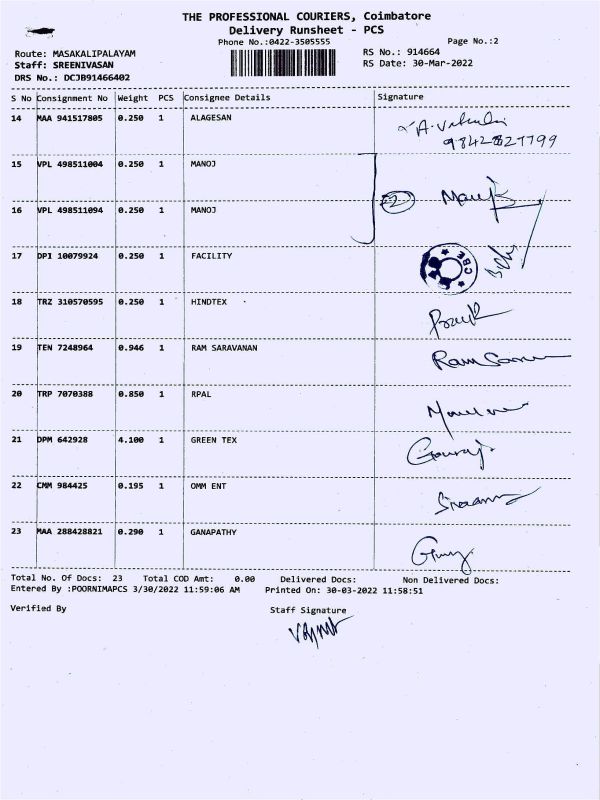 THE PROFESSIONAL COURIERS, Coimbatore
Delivery Runsheet - PCS
Phone No.:0422-3505555
Page No.:2
Route: MASAKALIPALAYAM
Staff: SREENIVASAN
DRS No.: DCJB91466402
RS No.: 914664
RS Date: 30-Mar-2022
S No Consignment No Weight PCS Consignee Details Signature
14 MAA 941517805 0.250 1 ALAGESAN
15 VPL 498511004 0.250 1 MANOJ
16 VPL 498511094 0.250 1 MANOJ
22
17 DPI 10079924 0.250 1 FACILITY
CBE
18 TRZ 310570595 0.250 1 HINDTEX
19 TEN 7248964 0.946 1 RAM SARAVANAN
20 TRP 7070388 0.850 1 RPAL
21 DPM 642928 4.100 1 GREEN TEX
22 CMM 984425 0.195 1 OMM ENT
23 MAA 288428821 0.290 1 GANAPATHY
Total No. Of Docs: 23 Total COD Amt: 0.00 Delivered Docs: Non Delivered Docs:
Entered By :POORNIMAPCS 3/30/2022 11:59:06 AM Printed On: 30-03-2022 11:58:51
Verified By Staff Signature